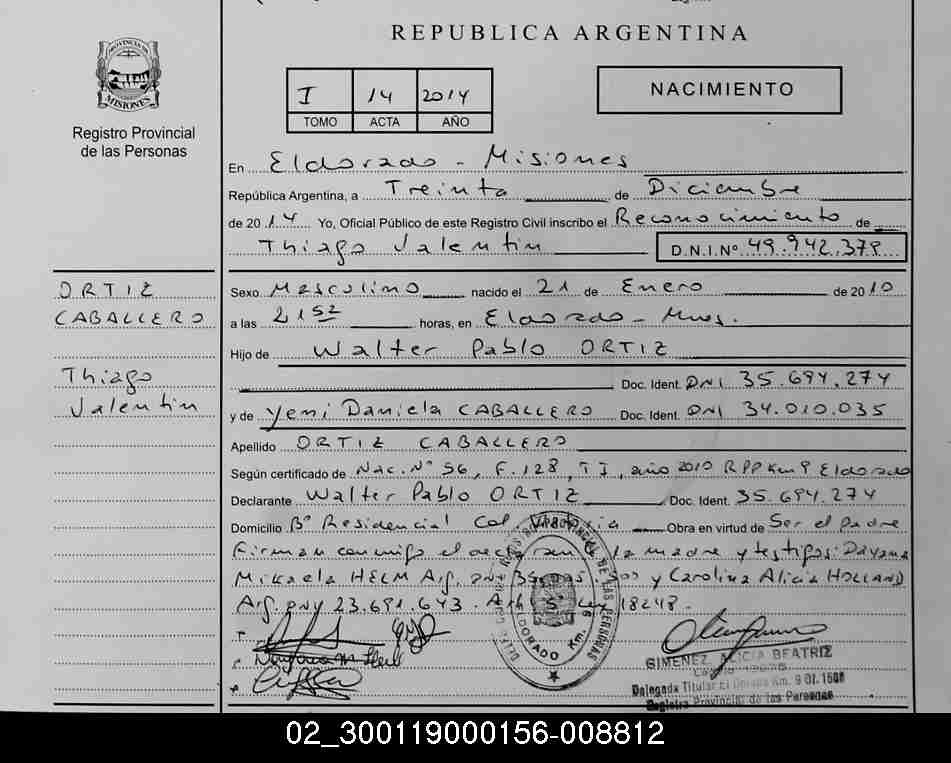 REPUBLICA ARGENTINA
PROVINCIA DE
MISIONES
Registro Provincial
de las Personas
I 14 2014
TOMO ACTA AÑO
NACIMIENTO
En Eldorado - Misiones
República Argentina, a Treinta de Diciembre
de 2014 Yo, Oficial Público de este Registro Civil inscribo el Reconocimiento de
Thiago Valentin D.N.I.Nº 49.942.379
ORTIZ
CABALLERO
Thiago
Valentin
Sexo Masculino nacido el 21 de Enero de 2010
a las 21 52 horas, en Eldorado - Mnes.
Hijo de Walter Pablo ORTIZ
Doc. Ident. DNI 35.694.274
y de Yeni Daniela CABALLERO Doc. Ident. DNI 34.010.035
Apellido ORTIZ CABALLERO
Según certificado de Nac. Nº 56, F. 128, T I, año 2010 RPP Km 9 Eldorado
Declarante Walter Pablo ORTIZ Doc. Ident. 35.694.274
Domicilio Bº Residencial Col. Victoria Obra en virtud de Ser el padre
Firman conmigo el declarante la madre y testigos: Dayana
Mikaela HELM Arg. DNI y Carolina Alicia HOLLAND
Arg. DNI 23.691.643. Ley 18248.
REGISTRO PROVINCIAL DE LAS PERSONAS
ELDORADO Km.
GIMENEZ, ALICIA BEATRIZ
Delegada Titular Eldorado Km. 9 Of. 1508
Registro Provincial de las Personas
02_300119000156-008812